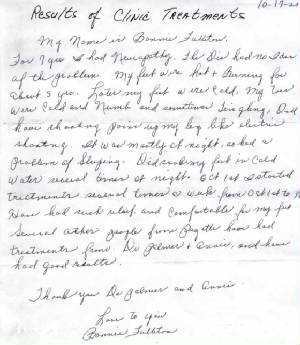 10-17-
Results of Clinic Treatments
My Name is Bonnie Fullston.
For 7 yrs I had Neuropathy. The Drs had no idea
of the problem. My feet were Hot & Burning for
about 3 yrs. Later my feet were cold. My Toes
were Cold and Numb and sometimes Tingling, Did
have shooting pains up my leg like electric
shooting. It was mostly at night, so had a
problem of Sleeping. Did soak my feet in Cold
Water several times at night. Oct 1st I started
treatments several times a week from Oct 1st to
Have had such relief and Comfortable for my feet
Several other people from have had
treatments from Dr Palmer & Annie, and have
had good results.
Thank you Dr Palmer and Annie
Love to you
Bonnie Fullston